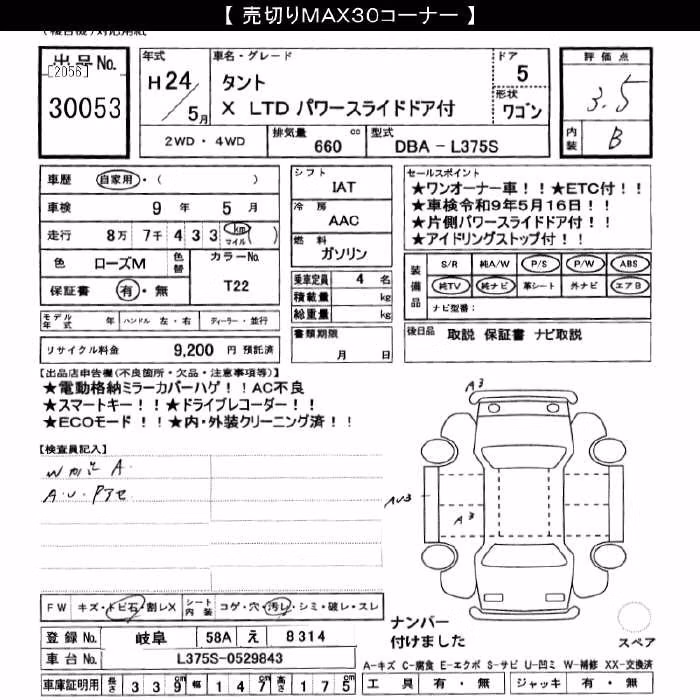 【 売切りMAX30コーナー 】
出品No.
[2056]
30053
年式
H24/5月
車名・グレード
タント
X LTD パワースライドドア付
ドア
5
形状
ワゴン
評価点
3.5
内装
B
2WD・4WD
排気量
660 cc
型式
DBA - L375S
車歴
自家用・( )
車検
9 年 5 月
走行
8万 7千 4 3 3 km マイル( )
色
ローズM
色替
カラーNo.
T22
保証書
有・無
シフト
IAT
冷房
AAC
燃料
ガソリン
乗車定員 4 名
積載量 kg
総重量 kg
書類期限
月 日
セールスポイント
★ワンオーナー車！！★ETC付！！
★車検令和9年5月16日！！
★片側パワースライドドア付！！
★アイドリングストップ付！！
装備品
S/R 純A/W P/S P/W ABS
純TV 純ナビ 革シート 外ナビ エアB
ナビ型番：
後日品 取説 保証書 ナビ取説
モデル年式 年 ハンドル 左・右 ディーラー・並行
リサイクル料金 9,200 円 預託済
【出品店申告欄(不良箇所・欠品・注意事項等)】
★電動格納ミラーカバーハゲ！！AC不良
★スマートキー！！★ドライブレコーダー！！
★ECOモード！！★内・外装クリーニング済！！
【検査員記入】
A.U.
A3
AU3
A3
FW キズ・トビ石・割レX
シート内装 コゲ・穴・汚レ・シミ・破レ・スレ
ナンバー
付けました
スペア
登録No. 岐阜 58A え 8314
車台No. L375S-0529843
A-キズ C-腐食 E-エクボ S-サビ U-凹ミ W-補修 XX-交換済
車庫証明用 長さ 3 3 9 cm 幅 1 4 7 cm 高さ 1 7 5 cm
工具 有・無 ジャッキ 有・無